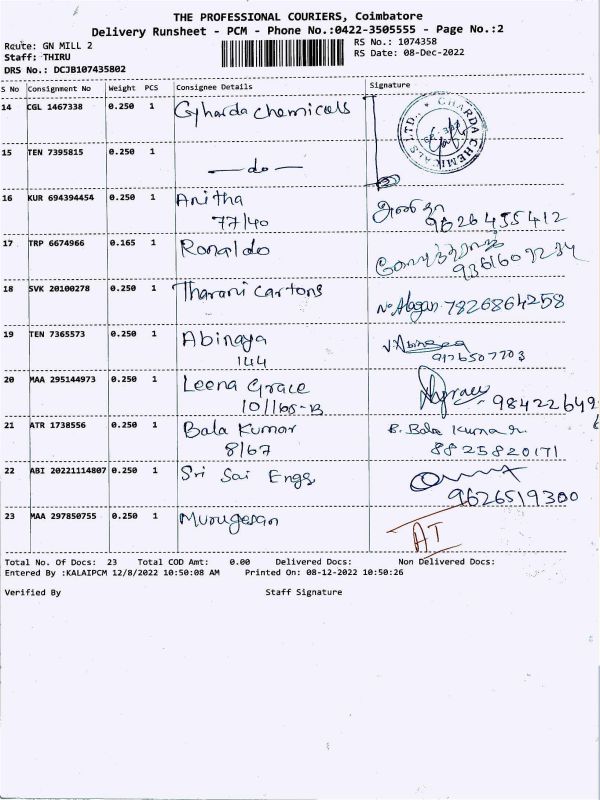 THE PROFESSIONAL COURIERS, Coimbatore
Delivery Runsheet - PCM - Phone No.:0422-3505555 - Page No.:2
Route: GN MILL 2
RS No.: 1074358
Staff: THIRU
RS Date: 08-Dec-2022
DRS No.: DCJB107435802
S No Consignment No Weight PCS Consignee Details Signature
14 CGL 1467338 0.250 1 Gyharda chemicals
GHARDA CHEMICALS LTD.
15 TEN 7395815 0.250 1 —do—
16 KUR 694394454 0.250 1 Anitha
77/40 9626455412
17 TRP 6674966 0.165 1 Ronaldo
18 SVK 20100278 0.250 1 Tharani cartons 7826864258
19 TEN 7365573 0.250 1 Abinaya V. Abinaya
144 9176507703
20 MAA 295144973 0.250 1 Leena Grace
10/165-B 98422649
21 ATR 1738556 0.250 1 Bala Kumar B. Bala Kumar.
8/67 8825820171
22 ABI 20221114807 0.250 1 Sri Sai Engg
9626519300
23 MAA 297850755 0.250 1 Murugesan AT
Total No. Of Docs: 23 Total COD Amt: 0.00 Delivered Docs: Non Delivered Docs:
Entered By :KALAIPCM 12/8/2022 10:50:08 AM Printed On: 08-12-2022 10:50:26
Verified By Staff Signature